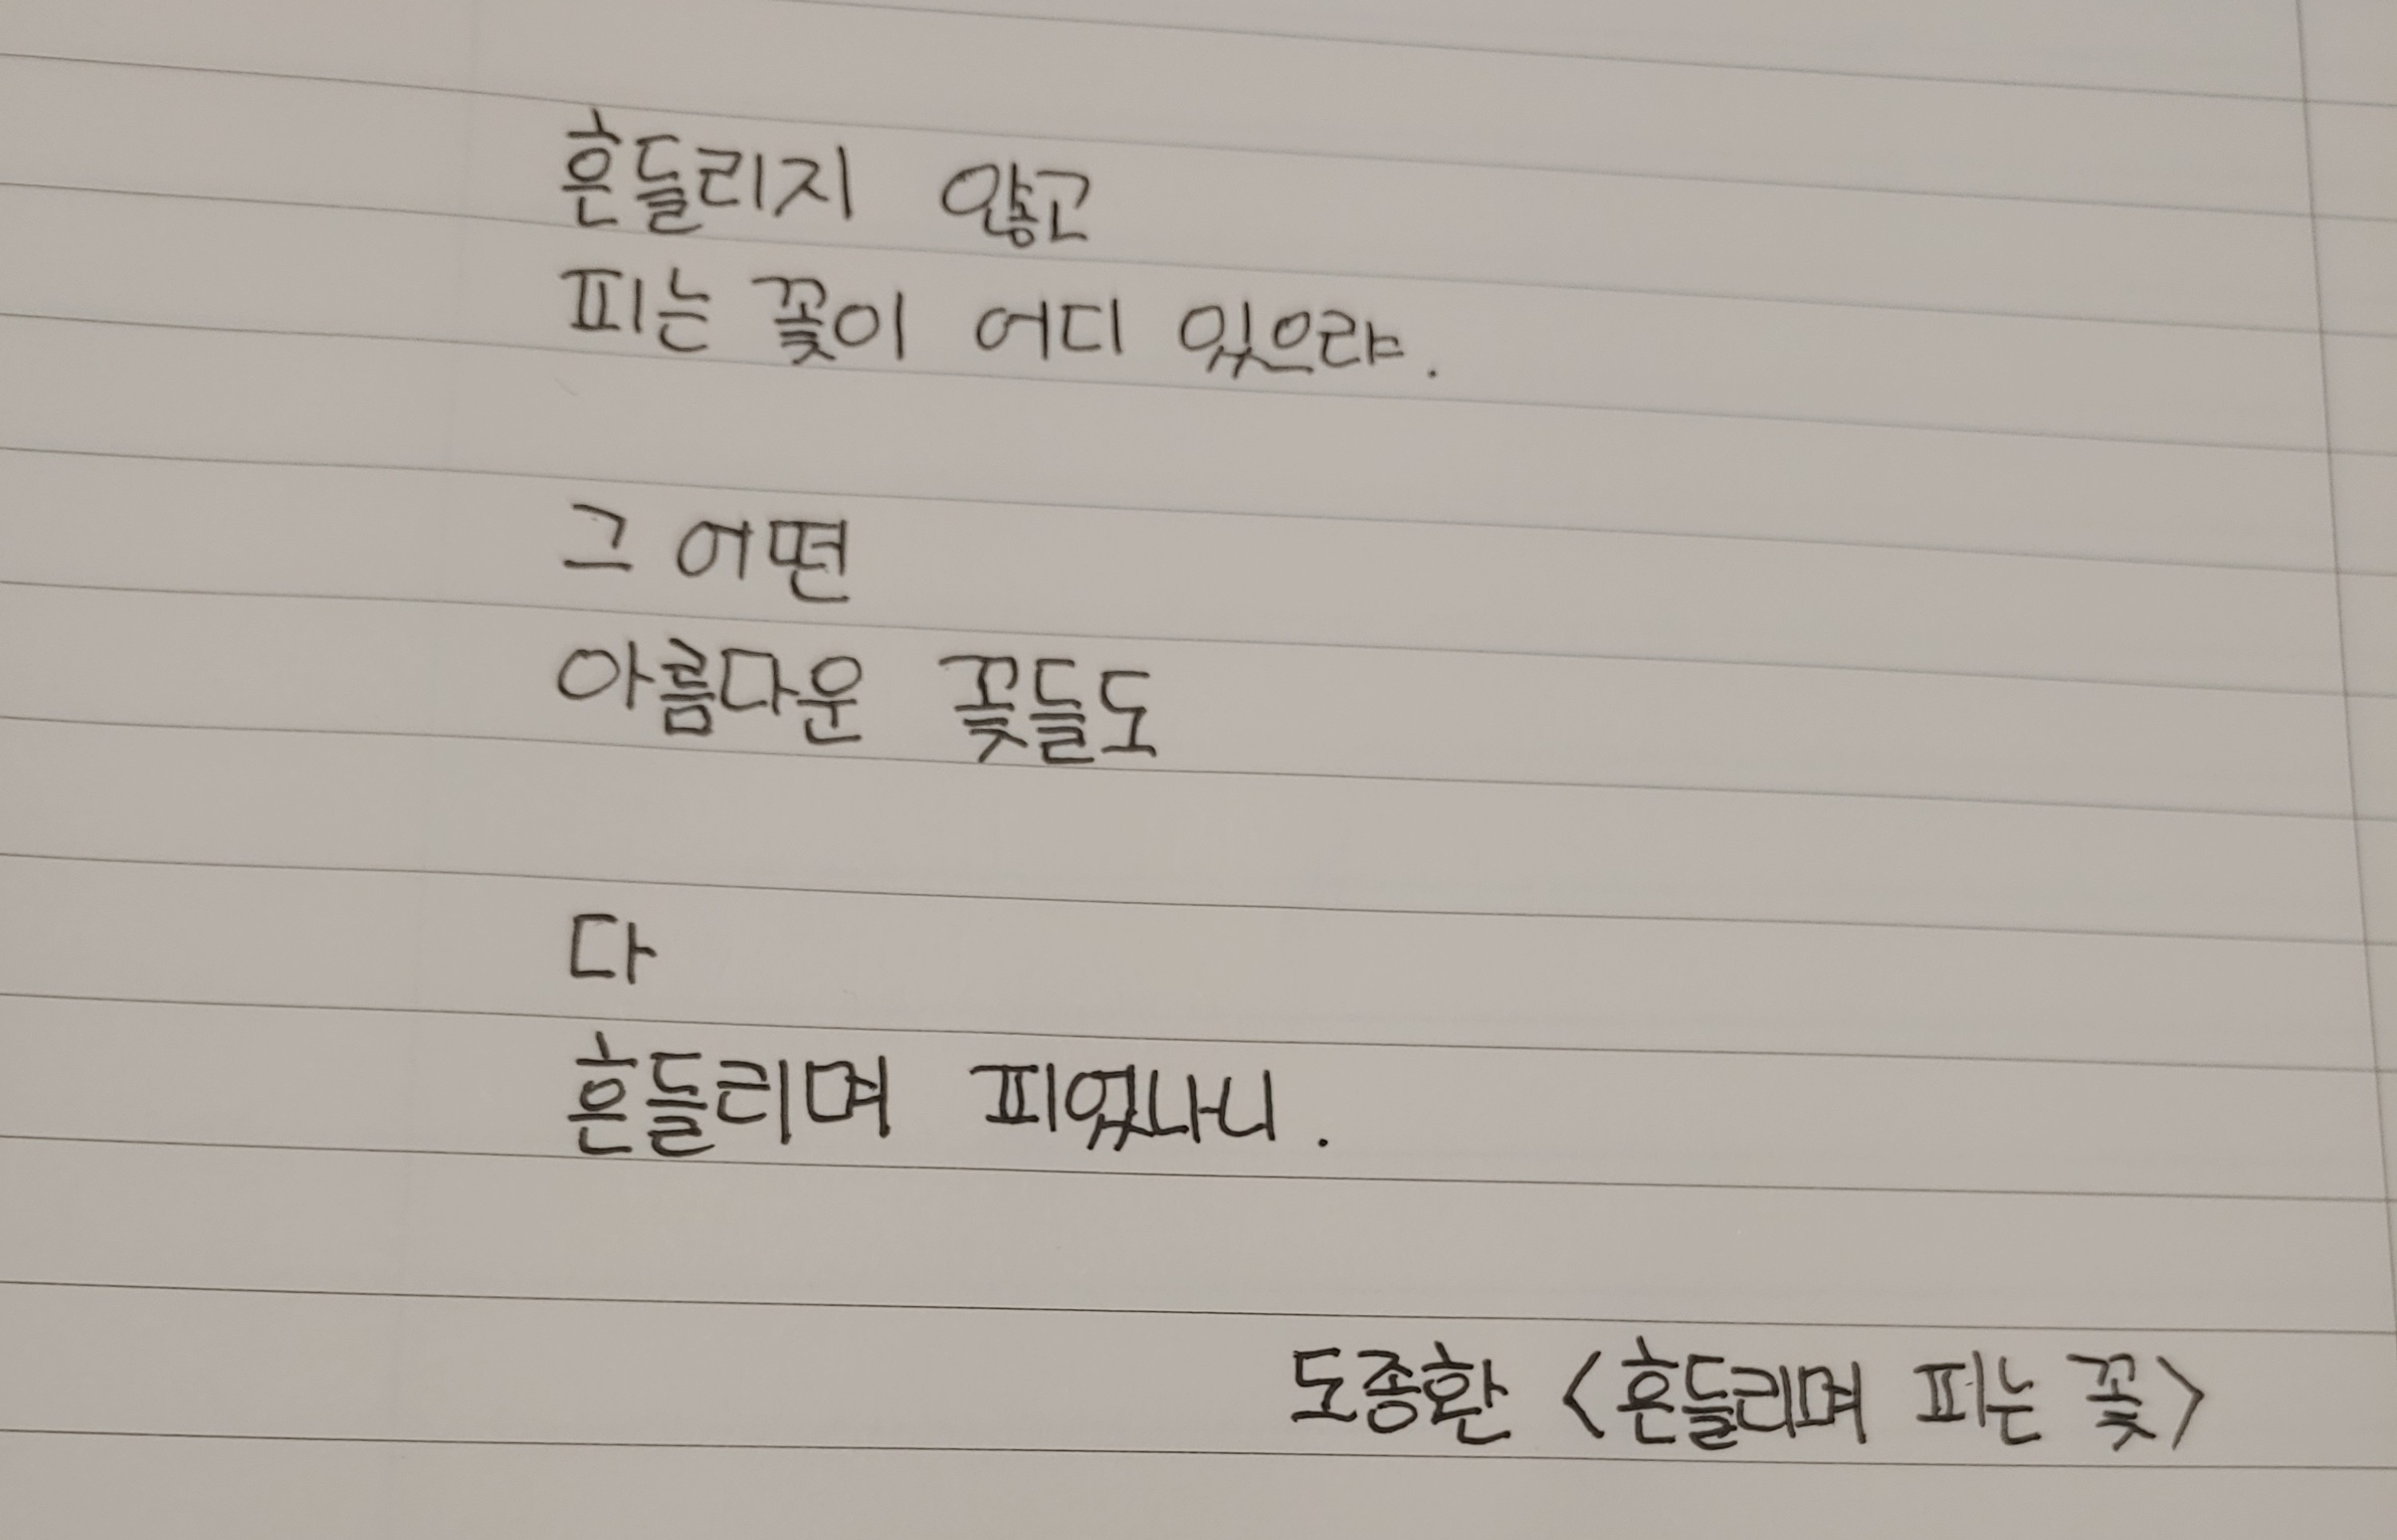 흔들리지 않고
피는 꽃이 어디 있으랴.
그 어떤
아름다운 꽃들도
다
흔들리며 피었나니.
도종환 <흔들리며 피는 꽃>